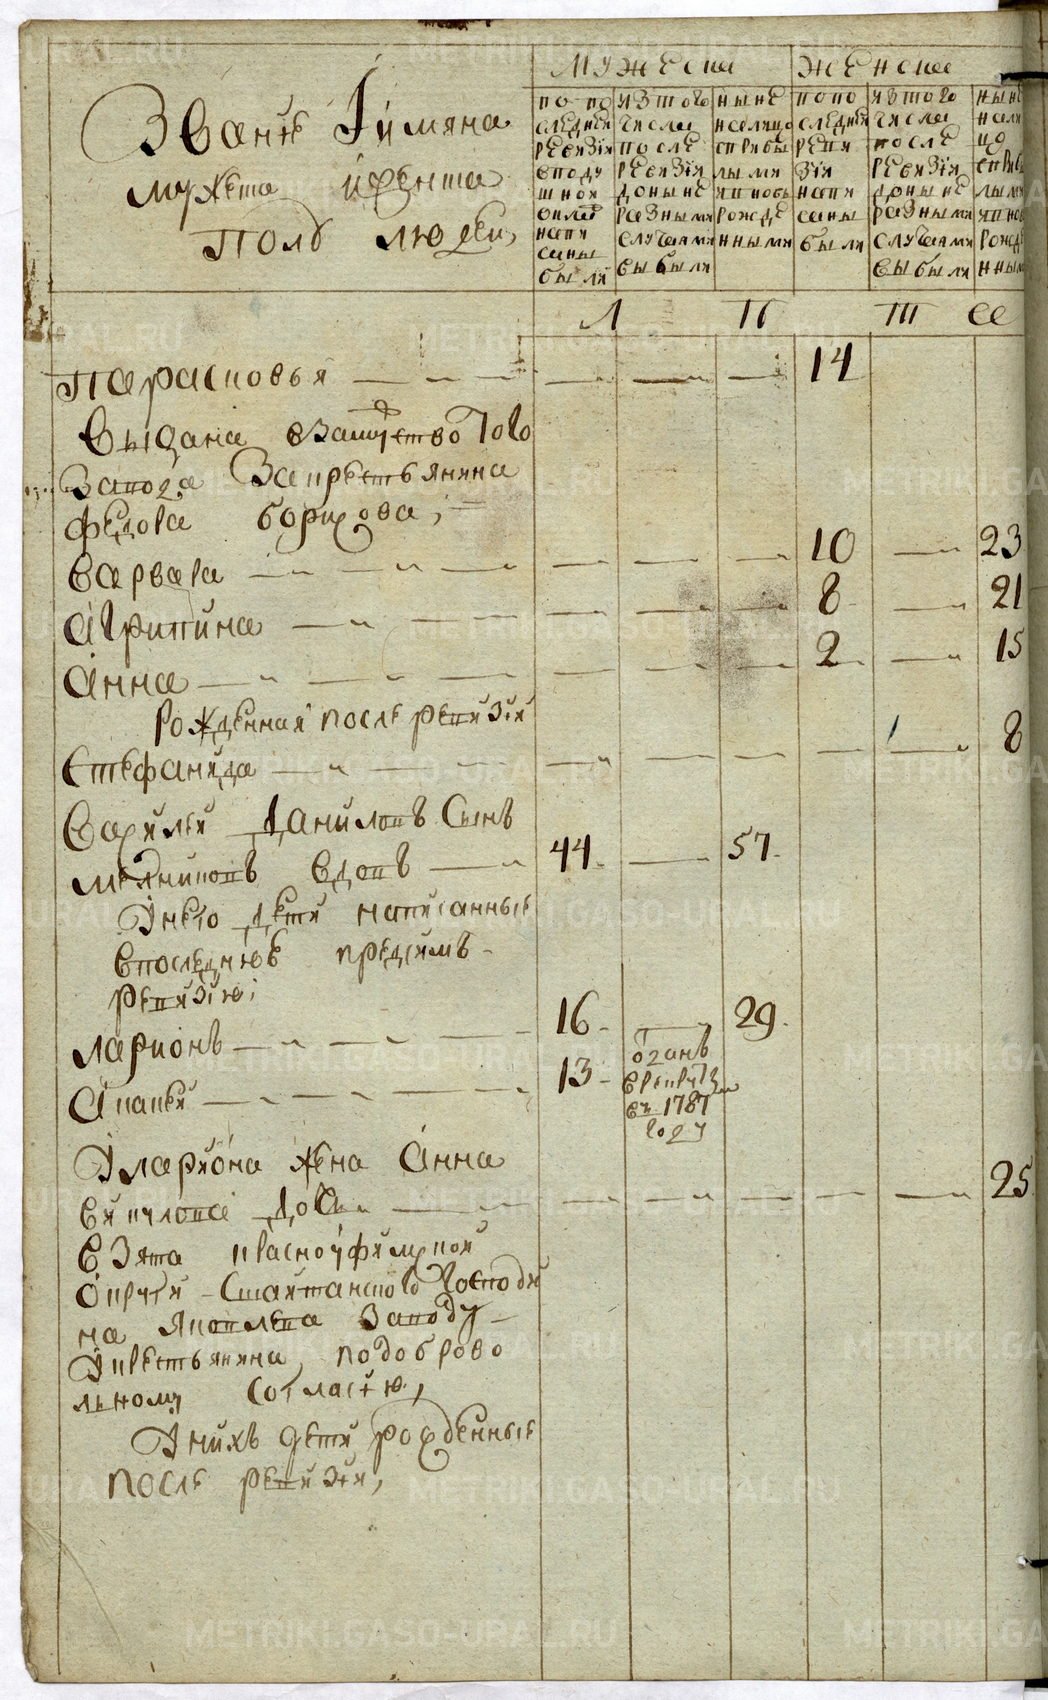 Званїе Їимяна
мужеска иженска
Полв людеи,
Мужеска
Женска
по по следней ревизїи вподушной оклад написаны были
изтого числа после ревизїи доныне разными случаями выбыли
ныне налицо сприбылыми ивновь рожденными
попо следней ревизїи написаны были
изтого числа после ревизїи доныне разными случаями выбыли
ныне
Л Ѣ Т а
Парасковья 14
выдана взамужство того
завода закрестьянина
федора борисова,
варвара 10 23
агрипина 8 21
анна 2 15
рожденная после ревизїи
стефанида 8
василей даниловъ сынъ
медниковъ вдовъ 44 57
Унего дети написанные
впоследнюю предсимъ
ревизїю;
ларионъ 16 29
13 отданъ
врекруты
въ 1787
году
Улариона жена анна 25
викулова дочь
взята красноуфимской
округи Сылвинского господи
на яковлева заводу
укрестьянина, подоброво
льному согласїю,
Унихъ дети рожденные
после ревизїи,
METRIKI.GASO-URAL.RU